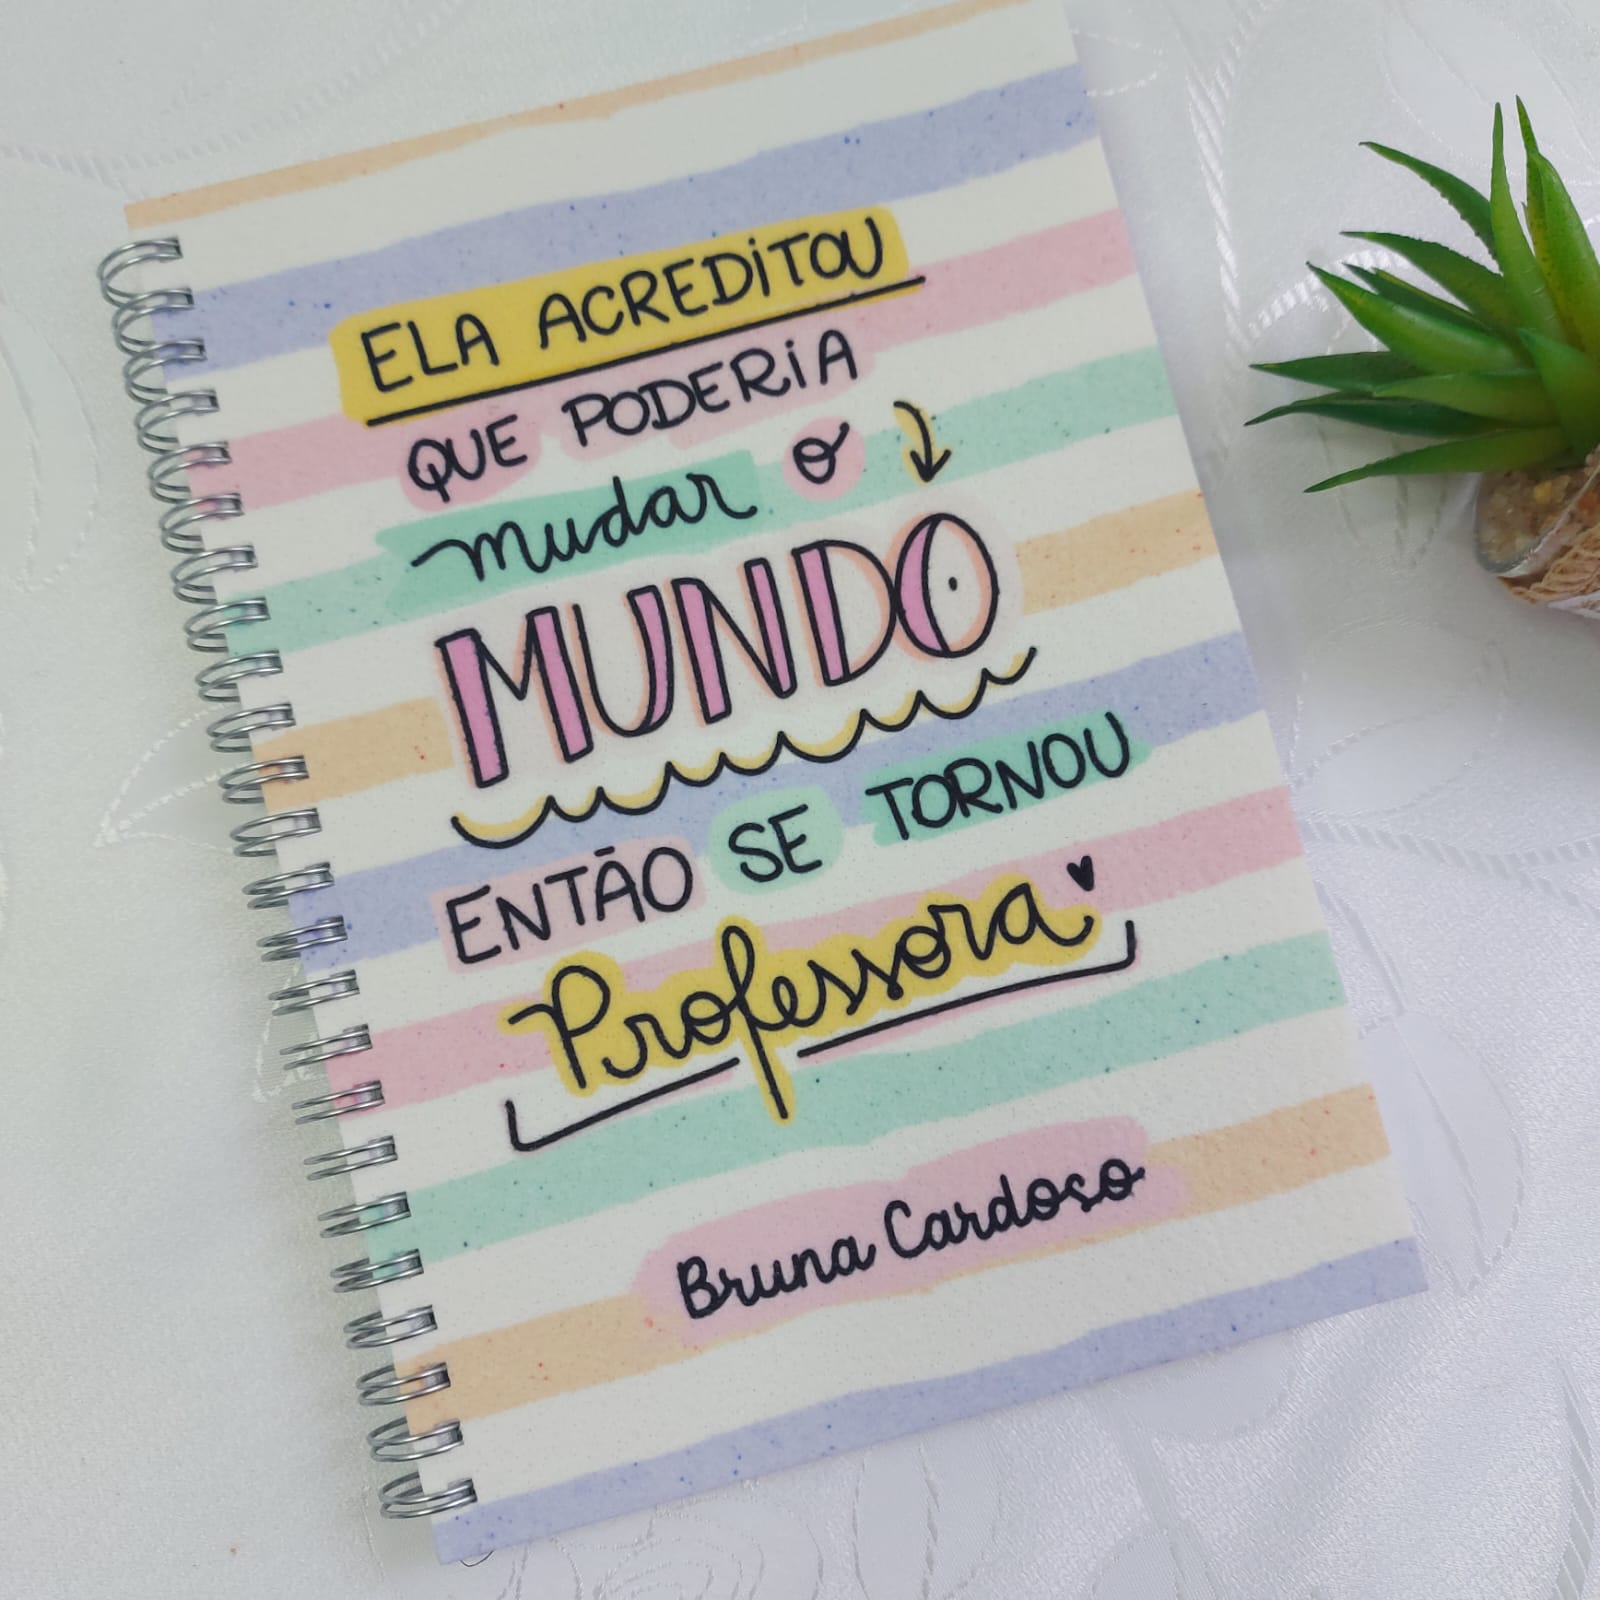 ELA ACREDITOU
QUE PODERIA
mudar o
MUNDO
ENTÃO SE TORNOU
Professora
Bruna Cardoso